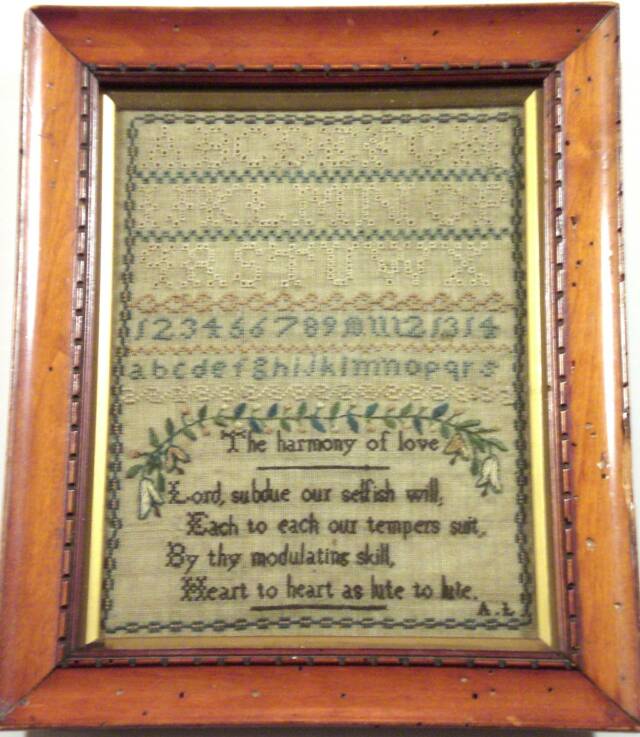 ABCDEFGH
IJKLMNOP
QRSTUWX
1 2 3 4 5 6 7 8 9 10 11 12 13 14
a b c d e f g h i j k l m n o p q r s
The harmony of love
Lord, subdue our selfish will,
Each to each our tempers suit,
By thy modulating skill,
Heart to heart as lute to lute.
A. L